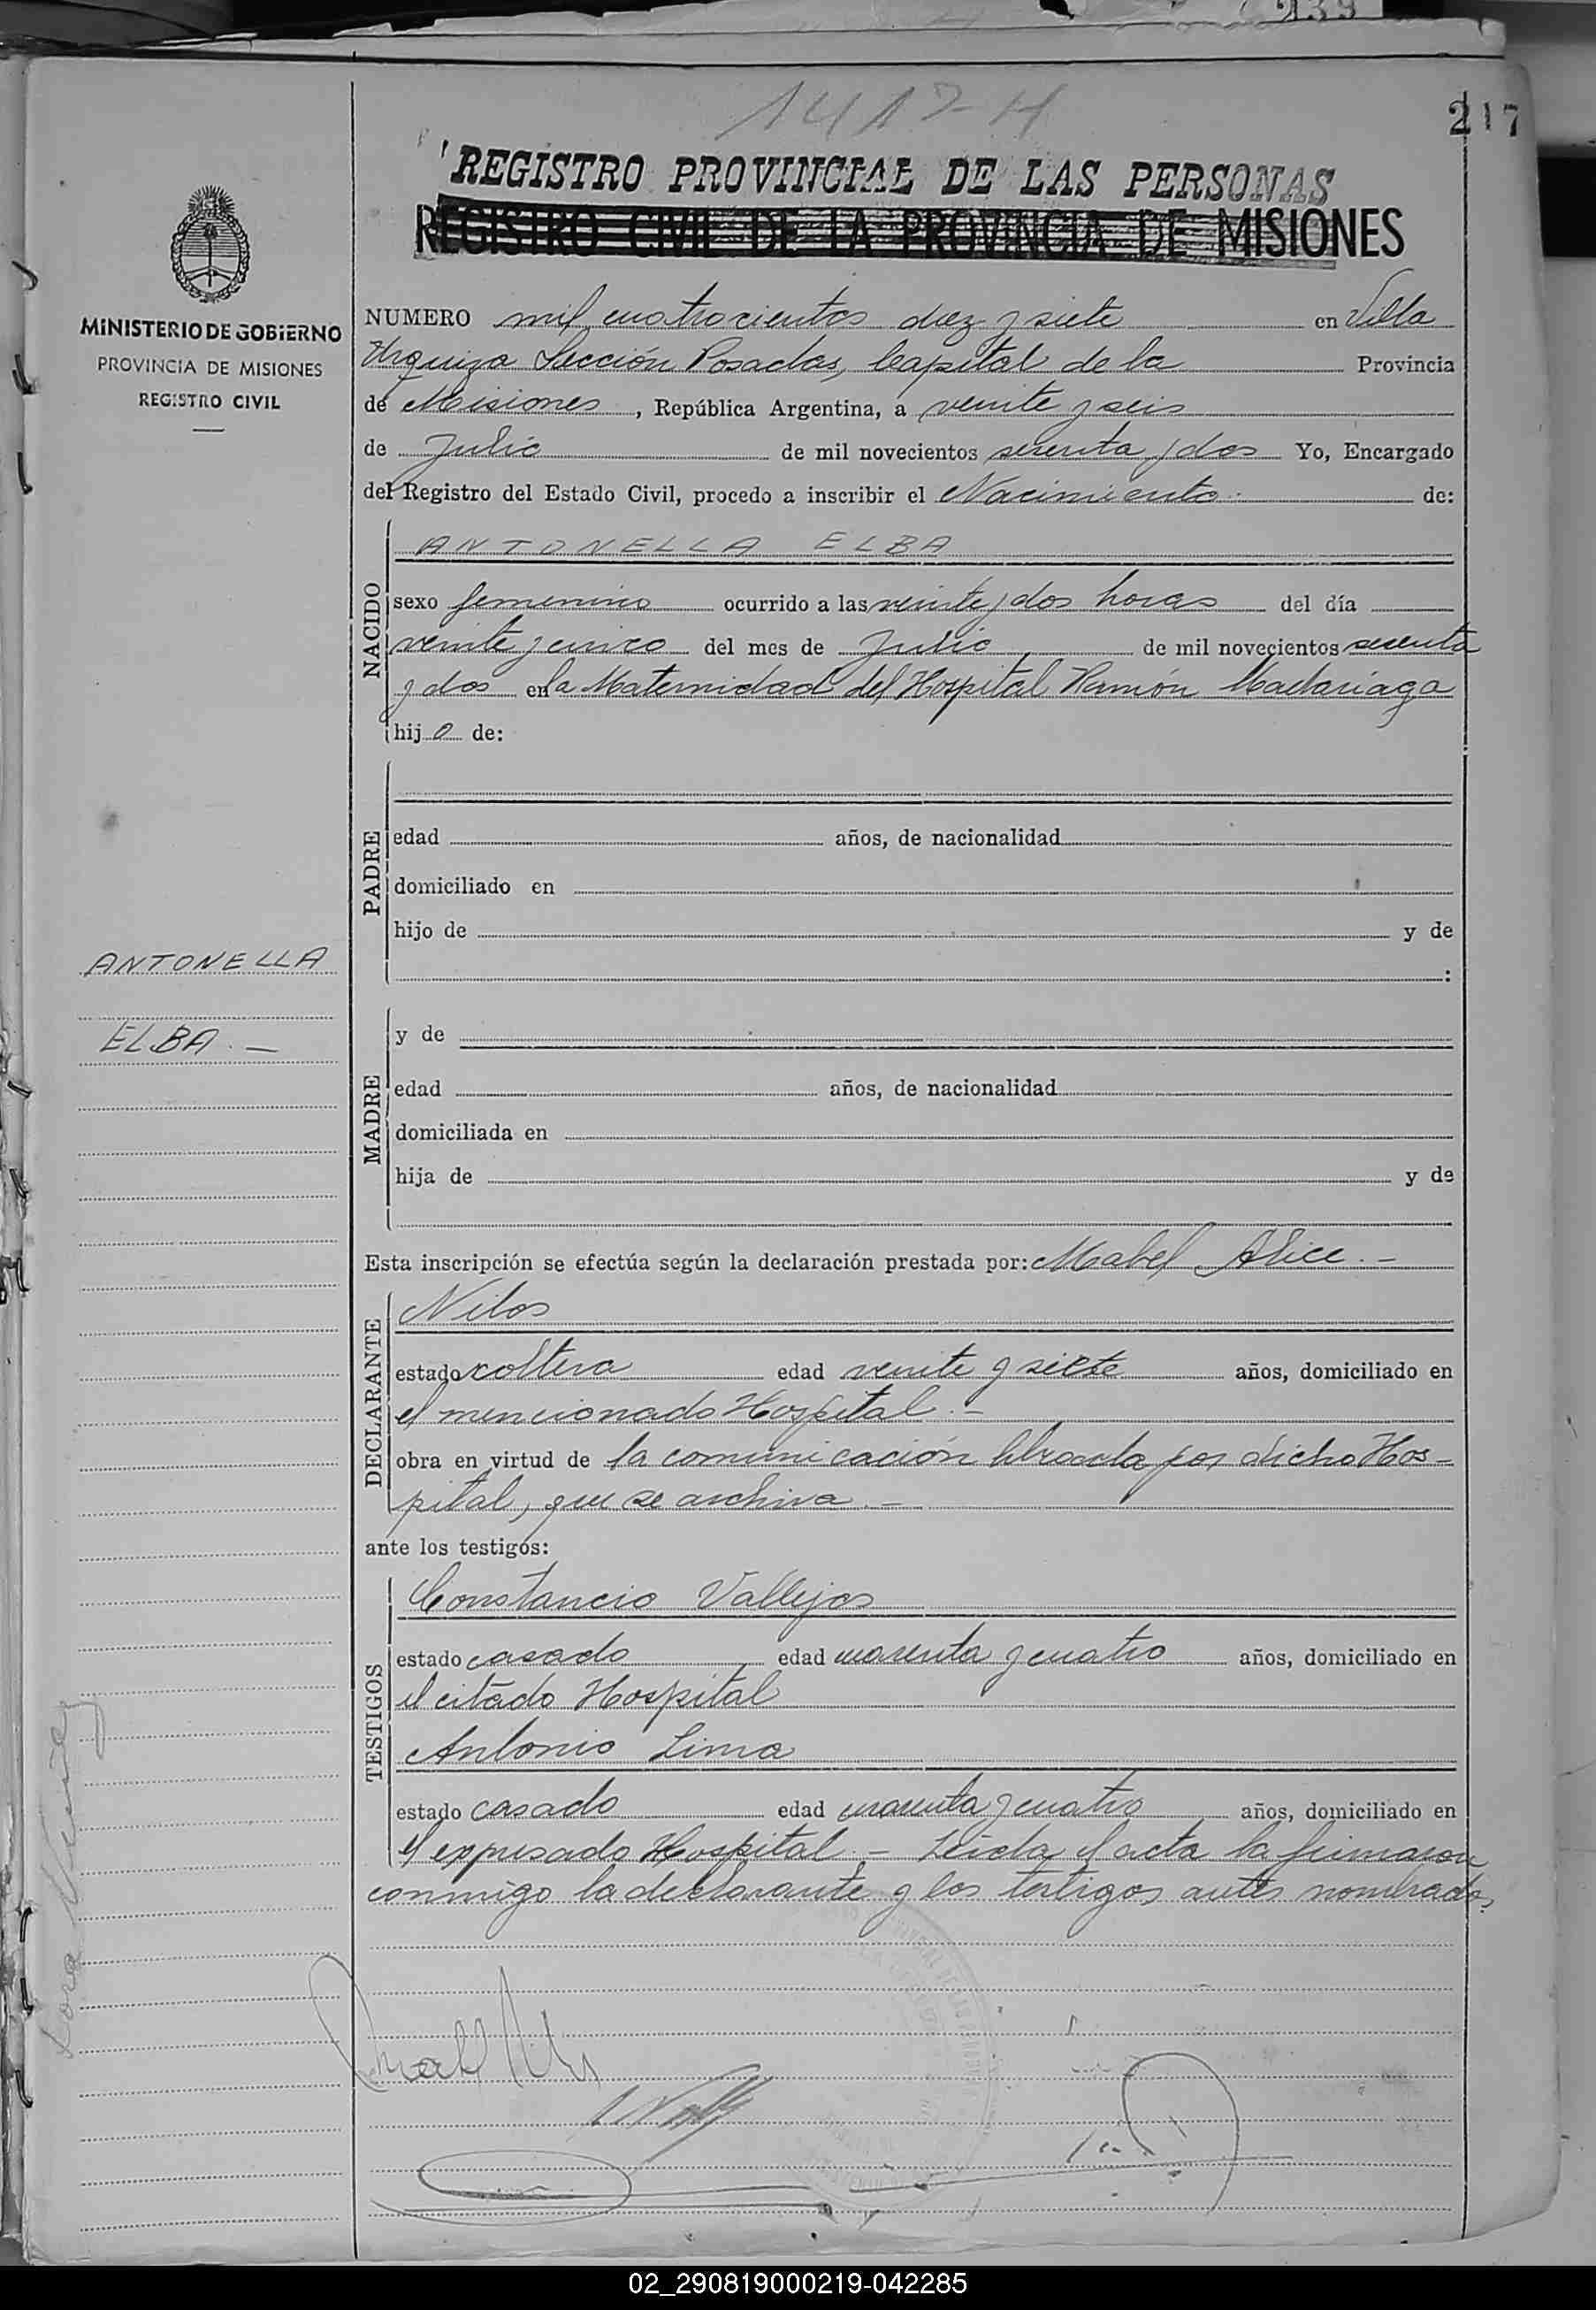 239
1417-H
217
REGISTRO PROVINCIAL DE LAS PERSONAS
REGISTRO CIVIL DE LA PROVINCIA DE MISIONES
MINISTERIO DE GOBIERNO
PROVINCIA DE MISIONES
REGISTRO CIVIL
NUMERO mil cuatrocientos diez y siete en Villa
Urquiza Sección Posadas, Capital de la Provincia
de Misiones, República Argentina, a veinte y seis
de Julio de mil novecientos sesenta y dos Yo, Encargado
del Registro del Estado Civil, procedo a inscribir el Nacimiento de:
NACIDO
ANTONELLA ELBA
sexo femenino ocurrido a las veinte y dos horas del día
veinte y cinco del mes de Julio de mil novecientos sesenta
y dos en la Maternidad del Hospital Ramón Madariaga
hij a de:
PADRE
edad años, de nacionalidad
domiciliado en
hijo de y de
:
ANTONELLA
ELBA.-
MADRE
y de
edad años, de nacionalidad
domiciliada en
hija de y de
Esta inscripción se efectúa según la declaración prestada por: Mabel Alice.-
DECLARANTE
Nilos
estado soltera edad veinte y siete años, domiciliado en
el mencionado Hospital.-
obra en virtud de la comunicación librada por dicho Hos-
pital, que se archiva.-
ante los testigos:
TESTIGOS
Constancio Vallejos
estado casado edad cuarenta y cuatro años, domiciliado en
el citado Hospital
Antonio Lima
estado casado edad cuarenta y cuatro años, domiciliado en
el expresado Hospital.- Leída el acta la firmaron
conmigo la declarante y los testigos antes nombrados.
02_290819000219-042285